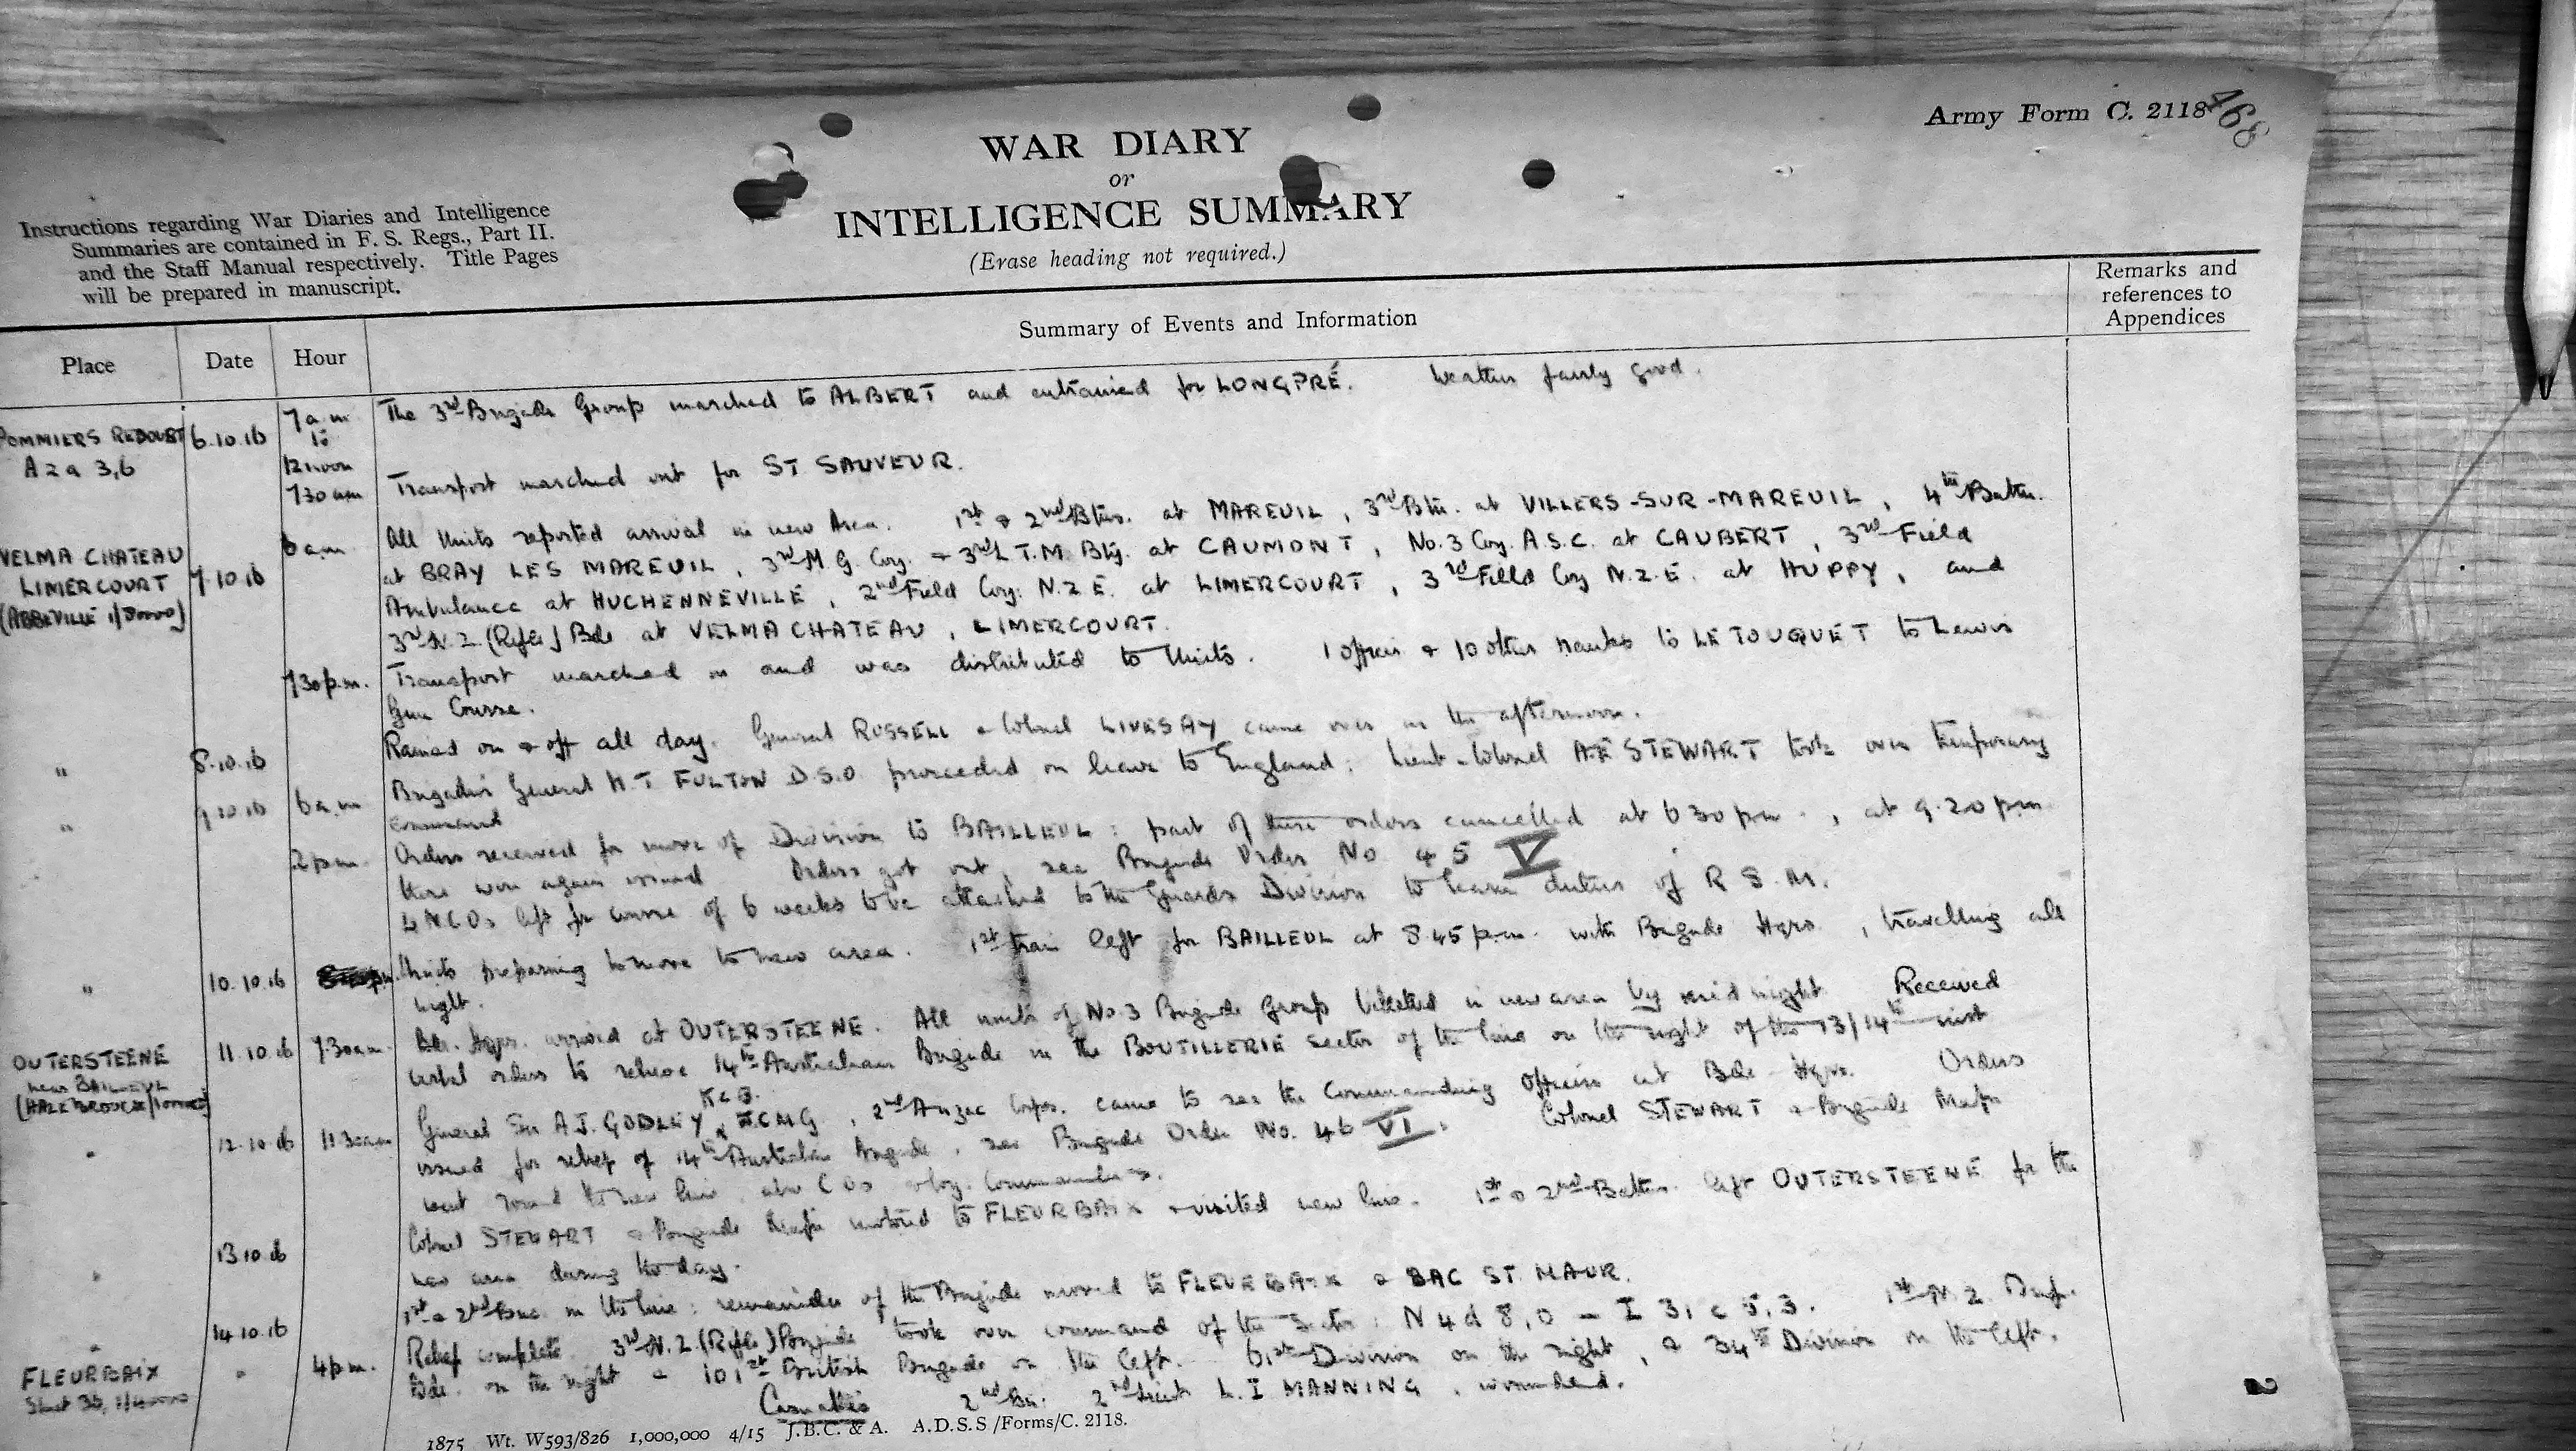 Army Form C. 2118
468
WAR DIARY
or
INTELLIGENCE SUMMARY
(Erase heading not required.)
Instructions regarding War Diaries and Intelligence
Summaries are contained in F. S. Regs., Part II.
and the Staff Manual respectively. Title Pages
will be prepared in manuscript.
Place Date Hour Summary of Events and Information Remarks and
references to
Appendices
POMMIERS REDOUBT 6.10.16 7 a.m. The 3rd Brigade Group marched to ALBERT and entrained for LONGPRÉ. Weather fairly good.
A 2 a 3,6 to
12 noon
730 am Transport marched out for ST SAUVEUR.
VELMA CHATEAU 7.10.16 6 a.m. All Units reported arrival in new Area. 1st & 2nd Btns. at MAREUIL, 3rd Btn. at VILLERS-SUR-MAREUIL, 4th Battn.
LIMERCOURT at BRAY LES MAREUIL, 3rd M.G. Coy. & 3rd L.T.M. Bty. at CAUMONT, No. 3 Coy. A.S.C. at CAUBERT, 3rd Field
(ABBEVILLE Ambulance at HUCHENNEVILLE, 2nd Field Coy. N.Z.E. at LIMERCOURT, 3rd Field Coy N.Z.E. at HUPPY, and
3rd N.Z. (Rifle) Bde at VELMA CHATEAU, LIMERCOURT.
730 p.m. Transport marched in and was distributed to Units. 1 officer & 10 other ranks to LE TOUQUET to Lewis
Gun Course.
" 8.10.16 Rained on & off all day. General RUSSELL & Colonel LIVESAY came over in the afternoon.
" 9.10.16 6 a.m. Brigadier General H.T FULTON D.S.O. proceeded on leave to England: Lieut-Colonel A.E STEWART took over temporary
command
2 p.m. Orders received for move of Division to BAILLEUL: part of these orders cancelled at 6 30 pm., at 9.20 pm
these were again issued Orders got out, see Brigade Order No 45 V
4 NCOs left for course of 6 weeks to be attached to the Guards Division to learn duties of R S. M.
" 10.10.16 Units preparing to move to new area. 1st train left for BAILLEUL at 8.45 p.m. with Brigade Hqrs., travelling all
night.
OUTERSTEENE 11.10.16 7.30 am Bde. Hqrs. arrived at OUTERSTEENE. All units of No. 3 Brigade Group billetted in new area by midnight Received
near BAILLEUL verbal orders to relieve 14th Australian Brigade in the BOUTILLERIE sector of the line on the night of the 13/14th inst
(HAZEBROUCK
" 12.10.16 11.30 am General Sir A.J. GODLEY K.C.B. & KCMG, 2nd Anzac Corps. came to see the Commanding Officers at Bde Hqrs. Orders
issued for relief of 14th Australian Brigade, see Brigade Order No. 46 VI. Colonel STEWART & Brigade Major
went round the new line, also COs & Coy. Commanders.
" 13.10.16 Colonel STEWART & Brigade Major motored to FLEURBAIX & visited new line. 1st & 2nd Battns. left OUTERSTEENE for the
new area during the day.
" 14.10.16 1st & 2nd Bns. in the line: remainder of the Brigade moved to FLEURBAIX & BAC ST. MAUR.
FLEURBAIX " 4 p.m. Relief complete. 3rd N.Z. (Rifle) Brigade took over command of the Sector: N 4 d 8,0 — I 31 c 5.3. 1st N.Z. Inf.
Sheet 36, Bde. on the right & 101st British Brigade on the left. 61st Division on the right, & 34th Division on the left.
Casualties 2nd Bn. 2nd Lieut L. I MANNING, wounded.
1875 Wt. W593/826 1,000,000 4/15 J.B.C. & A. A.D.S.S/Forms/C. 2118.